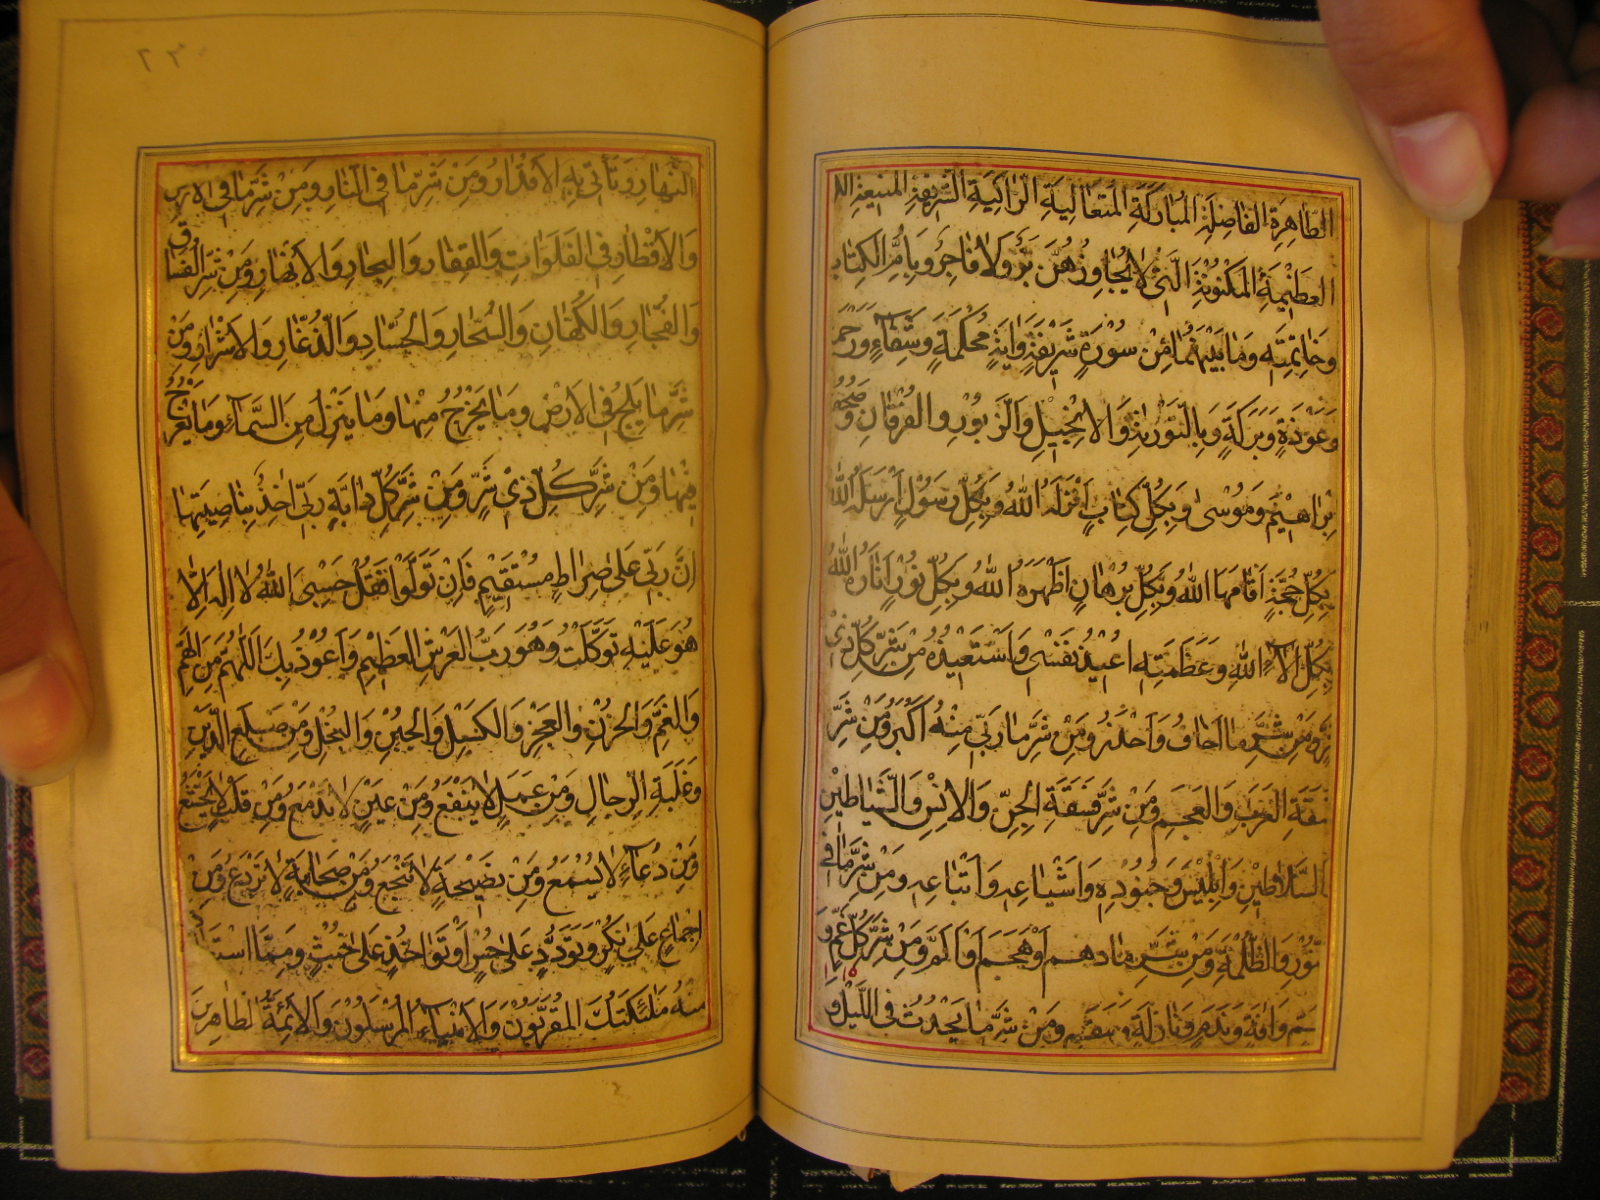 الطَّاهِرَةِ الفَاضِلَةِ المُبَارَكَةِ المُتَعَالِيَةِ الزَّاكِيَةِ الشَّرِيفَةِ المَنِيعَةِ
العَظِيمَةِ المَكْنُونَةِ الَّتِي لَا يُجَاوِزُهُنَّ بَرٌّ وَلَا فَاجِرٌ وَبِأُمِّ الكِتَابِ
وَخَاتِمَتِهِ وَمَا بَيْنَهُمَا مِنْ سُورَةٍ شَرِيفَةٍ وَآيَةٍ مُحْكَمَةٍ وَشِفَاءٍ وَرَحْمَ
وَعَوْذَةٍ وَبَرَكَةٍ وَبِالتَّوْرٰيةِ وَالاِنْجِيلِ وَالزَّبُورِ وَالفُرْقَانِ وَصُحُفِ
اِبْرَاهِيْمَ وَمُوْسٰى وَبِكُلِّ كِتَابٍ اَنْزَلَهُ اللهُ وَبِكُلِّ رَسُوْلٍ اَرْسَلَهُ اللهُ
بِكُلِّ حُجَّةٍ اَقَامَهَا اللهُ وَبِكُلِّ بُرْهَانٍ اَظْهَرَهُ اللهُ وَبِكُلِّ نُوْرٍ اَنَارَهُ اللهُ
بِكُلِّ اٰلَاءِ اللهِ وَعَظَمَتِهِ اُعِيْذُ نَفْسِى وَاَسْتَعِيْذُهُ مِنْ شَرِّ كُلِّ ذِىْ
وَمِنْ شَرِّ مَا اَخَافُ وَاَحْذَرُ وَمِنْ شَرِّ مَا رَبِّى مِنْهُ اَكْبَرُ وَمِنْ شَرِّ
فَسَقَةِ العَرَبِ وَالعَجَمِ وَمِنْ شَرِّ فَسَقَةِ الجِنِّ وَالاِنْسِ وَالشَّيَاطِيْنِ
السَّلَاطِيْنِ وَاِبْلِيْسَ وَجُنُوْدِهِ وَاَشْيَاعِهِ وَاَتْبَاعِهِ وَمِنْ شَرِّ مَا فِى
النُّوْرِ وَالظُّلْمَةِ وَمِنْ شَرِّ مَا دهم اَوْ هَجَمَ اَوْ اَلَمَّ وَمِنْ شَرِّ كُلِّ غَمٍّ وَ
هَمٍّ وَآفَةٍ وَنَدَمٍ وَنَازِلَةٍ وَسَقَمٍ وَمِنْ شَرِّ مَا يَحْدُثُ فِى اللَّيْلِ وَ
النَّهَارِ وَتَأْتِى بِهِ الاَقْدَارُ وَمِنْ شَرِّ مَا فِى النَّارِ وَمِنْ شَرِّ مَا فِى الاَرْضِ
وَالاَقْطَارِ فِى الفَلَوَاتِ وَالقِفَارِ وَالبِحَارِ وَالاَنْهَارِ وَمِنْ شَرِّ الفُسَّاقِ
وَالفُجَّارِ وَالكُهَّانِ وَالسُّحَّارِ وَالحُسَّادِ وَالذُّعَّارِ وَالاَشْرَارِ وَمِنْ
شَرِّ مَا يَلِجُ فِى الاَرْضِ وَمَا يَخْرُجُ مِنْهَا وَمَا يَنْزِلُ مِنَ السَّمَاءِ وَمَا يَعْرُجُ
فِيْهَا وَمِنْ شَرِّ كُلِّ ذِىْ شَرٍّ وَمِنْ شَرِّ كُلِّ دَابَّةٍ رَبِّى اٰخِذٌ بِنَاصِيَتِهَا
اِنَّ رَبِّى عَلٰى صِرَاطٍ مُسْتَقِيْمٍ فَاِنْ تَوَلَّوْا فَقُلْ حَسْبِىَ اللهُ لَا اِلٰهَ اِلَّا
هُوَ عَلَيْهِ تَوَكَّلْتُ وَهُوَ رَبُّ العَرْشِ العَظِيْمِ وَاَعُوْذُ بِكَ اَللّٰهُمَّ مِنَ الهَمِّ
وَالغَمِّ وَالحُزْنِ وَالعَجْزِ وَالكَسَلِ وَالجُبْنِ وَالبُخْلِ وَمِنْ ضَلَعِ الدَّيْنِ
وَغَلَبَةِ الرِّجَالِ وَمِنْ عَمَلٍ لَا يَنْفَعُ وَمِنْ عَيْنٍ لَا تَدْمَعُ وَمِنْ قَلْبٍ لَا يَخْشَعُ
وَمِنْ دُعَاءٍ لَا يُسْمَعُ وَمِنْ نَصِيْحَةٍ لَا تَنْجَعُ وَمِنْ صَحَابَةٍ لَا تَرْدَعُ وَمِنْ
اِجْمَاعٍ عَلٰى نُكْرٍ وَتَوَدُّدٍ عَلٰى خُسْرٍ اَوْ تَوَاخُذٍ عَلٰى خُبْثٍ وَمِمَّا اسْتَعَاذَ
مِنْهُ مَلٰئِكَتُكَ المُقَرَّبُوْنَ وَالاَنْبِيَاءُ المُرْسَلُوْنَ وَالاَئِمَّةُ الطَّاهِرِيْنَ